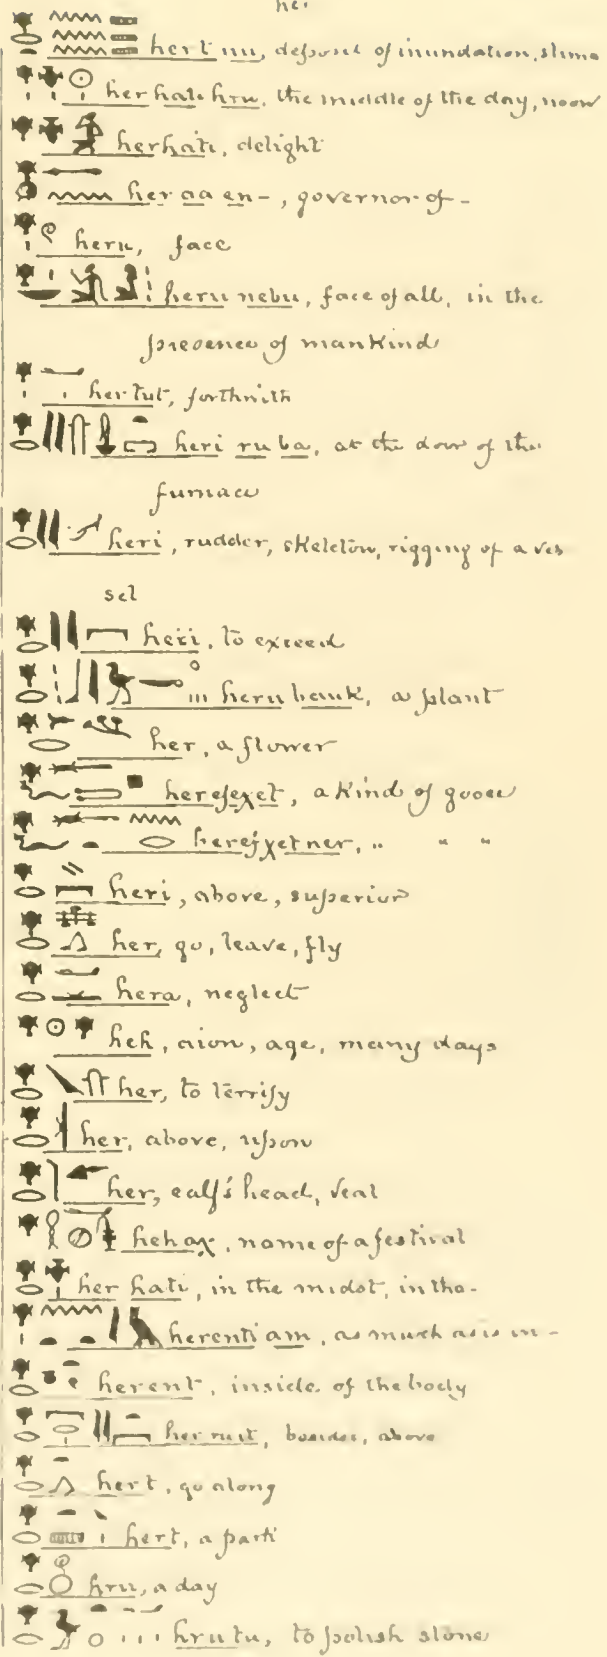 her
her t nu, deposit of inundation, slime
her hati hru, the middle of the day, noon
herhati, delight
her aa en-, governor of-
heru, face
heru nebu, face of all, in the
presence of mankind
her tut, forthwith
heri ru ba, at the door of the
furnace
heri, rudder, skeleton, rigging of a ves
sel
heri, to exceed
heru bauk, a plant
her, a flower
herefeχet, a kind of goose
herefχetner, " " "
heri, above, superior
her, go, leave, fly
hera, neglect
heh, aion, age, many days
her, to terrify
her, above, upon
her, calf's head, veal
hehaχ, name of a festival
her hati, in the midst, in the-
herenti am, as much as is in-
herent, inside of the body
her ruit, besides, above
hert, go along
hert, a part
hru, a day
hrutu, to polish stone